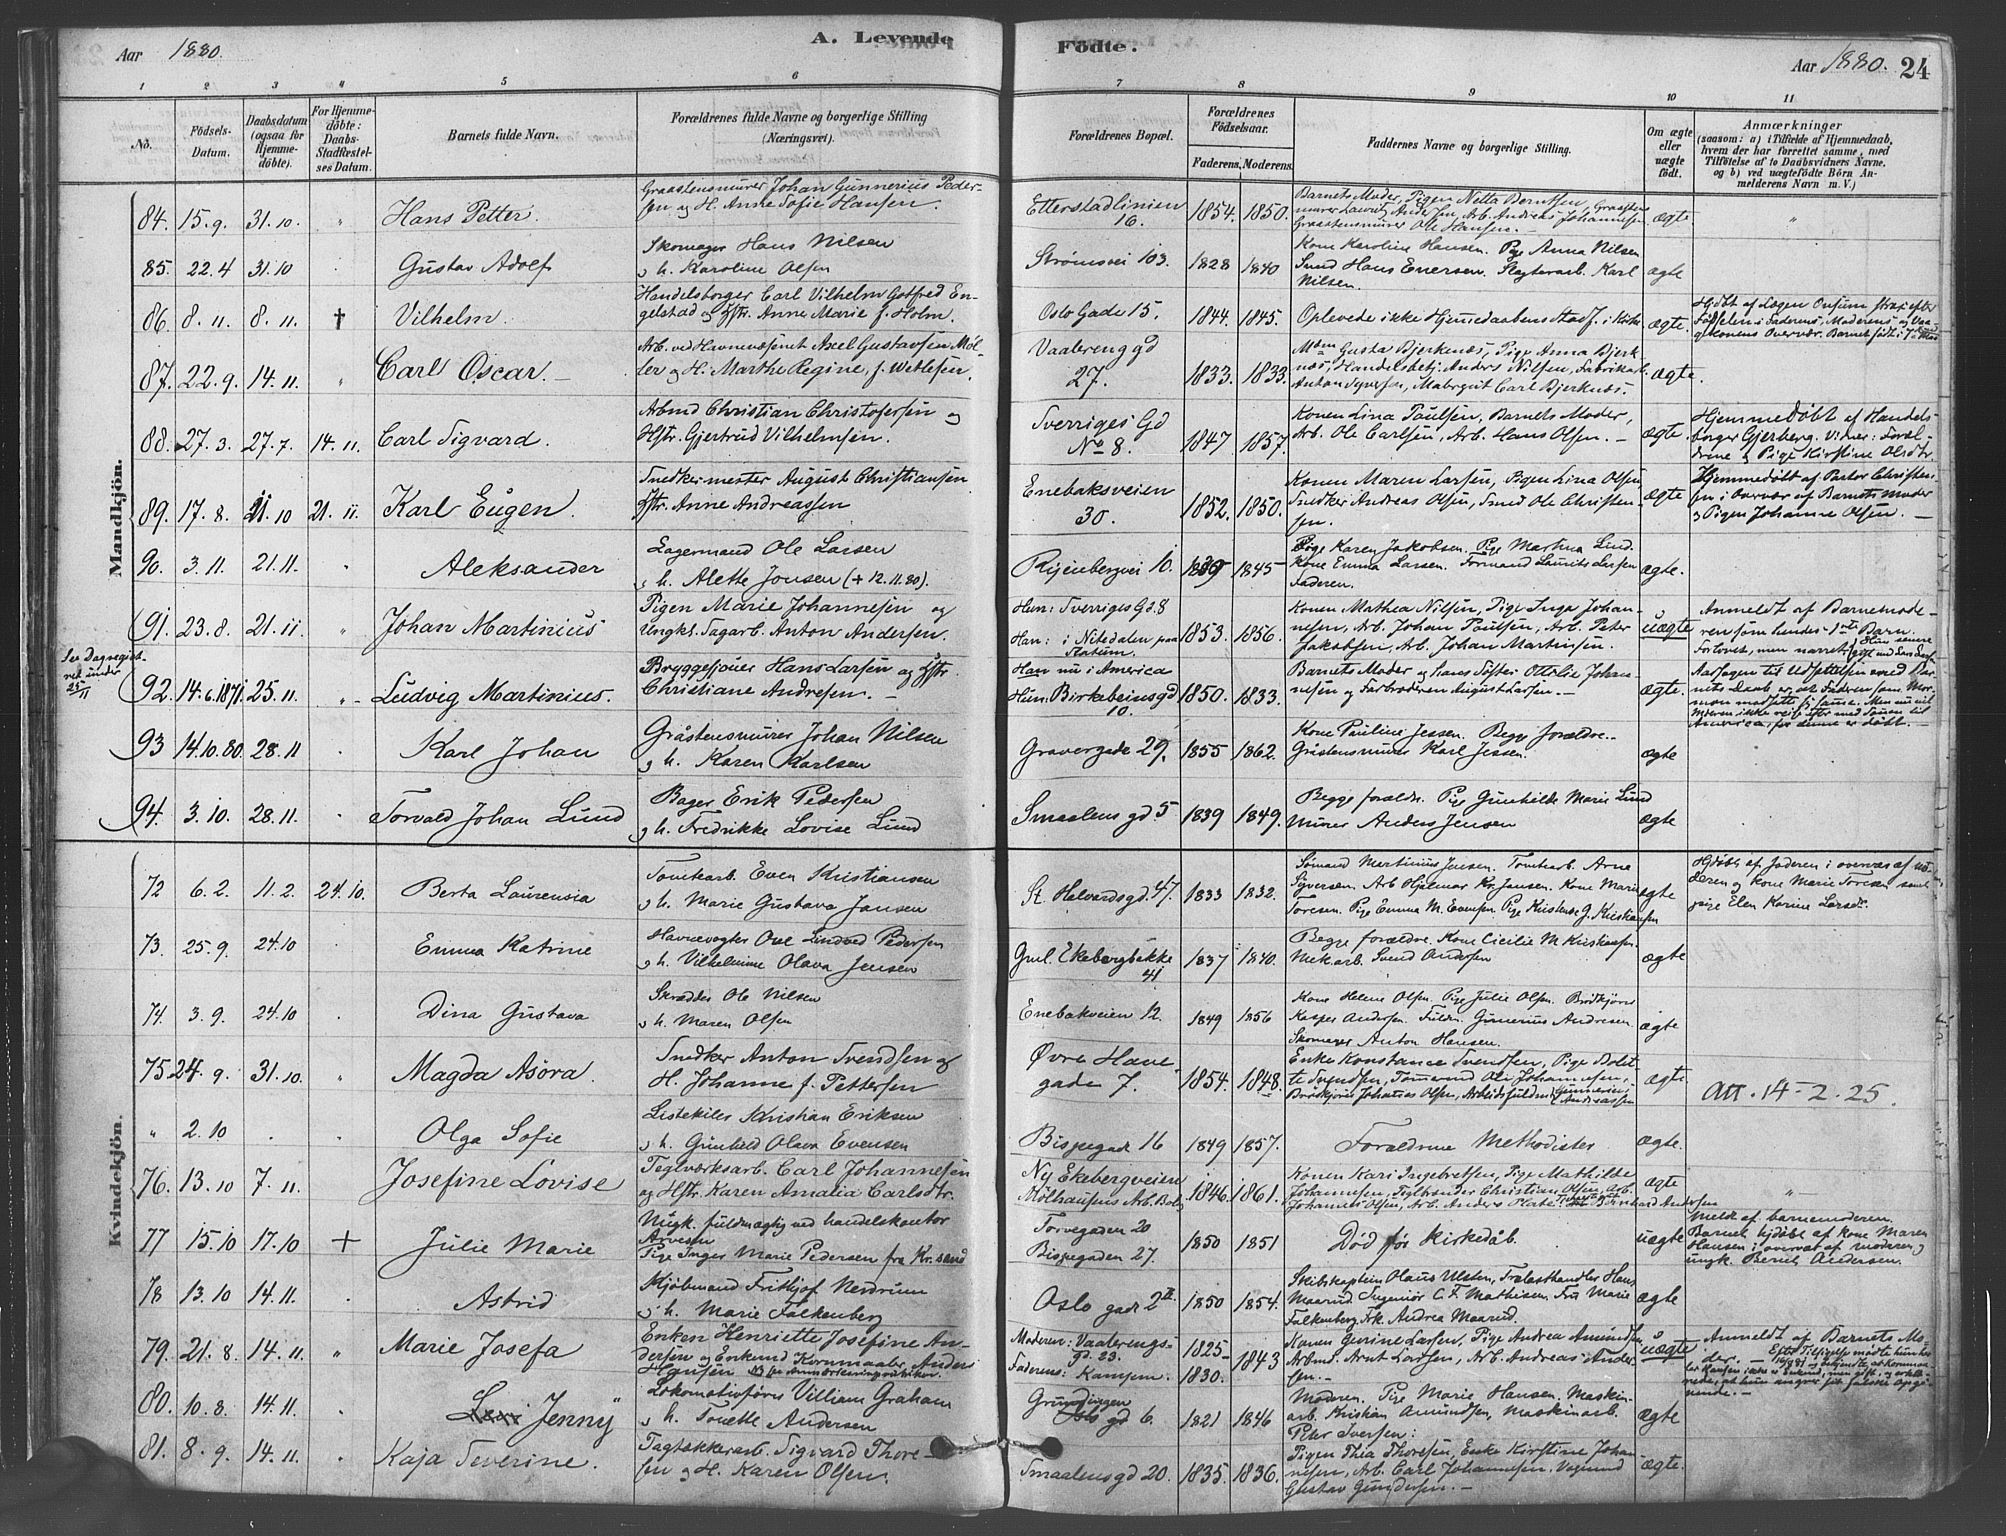 Aar 1880.
A. Levende
Fødte.
Aar 1880. 24
1 2 3 4 5 6 7 8 9 10 11
No.
Fødsels-
Datum.
Daabsdatum
(ogsaa for
Hjemme-
døbte).
For Hjemme-
døbte:
Daabs-
Stadfæstel-
ses Datum.
Barnets fulde Navn.
Forældrenes fulde Navne og borgerlige Stilling
(Næringsvei).
Forældrenes Bopæl.
Forældrenes
Fødselsaar.
Faderens. Moderens.
Faddernes Navne og borgerlige Stilling.
Om ægte
eller
uægte
født.
Anmærkninger
(saasom: a) i Tilfælde af Hjemmedaab,
hvem der har forrettet samme, med
Tilføielse af to Daabsvidners Navne,
og b) ved uægtefødte Børn An-
melderens Navn m. V.)
Mandkjön.
84. 15. 9. 31. 10. " Hans Petter.
Graastensmurer Johan Gunnerius Peder-
sen og H. Anne Sofie Hansen.
Etterstadlinien
16.
1854. 1850.
Barnets Moder, Pigen Netta Berntsen, Graasten
murer Lauritz Andersen, Arb. Andreas Johannesen
Graastensmurer Ole Hansen. -
ægte "
85. 22. 4 31. 10 Gustav Adolf
Skomager Hans Nilsen
o h. Karoline Olsen
Strømsvei 103. 1828 1840
Kone Karoline Hansen. Pige Anna Nilsen
Smed Hans Enersen. Slagterarb. Karl
Nilsen.
ægte
86. 8. 11. 8. 11. † Vilhelm
Handelsborger Carl Vilhelm Gotfred En-
gelstad og Hstr. Anne Marie f. Holm.
Oslo Gade 15. 1844. 1845.
Oplevede ikke Hjemmedaabens Stadf. i Kirke
ægte.
Hj.døbt af Lægen Onsum strax efter
Fødselen i Faderens, Moderens og Vaa-
gekonens Overvær. Barnet født i 7de Maa
87. 22. 9. 14. 11. " Carl Oscar. -
Arb. ved Havnevæsenet Axel Gustavsen Møl-
ler og H. Marthe Regine f. Wetlesen.
Vaalereng gd
27.
1833. 1833.
Mdm Gusta Bjerknæs, Pige Anna Bjerk-
næs, Handelsbetj. Anders Nilsen, Fabrikarb.
Anton Syversen, Malersvd. Carl Bjerknæs.
ægte.
88. 27. 3. 27. 7. 14. 11. Carl Sigvard.
Arbmd Christian Christofersen og
Hstr. Gjertrud Vilhelmsen.
Sverriges Gd
No 8.
1847 1857.
Konen Lina Paulsen, Barnets Moder,
Arb. Ole Carlsen, Arb. Hans Olsen. -
ægte
Hjemmedøbt af Handels-
borger Gjerberg. Vidner: Foræl-
drene og Pige Kirstine Olsdtr.
89. 17. 8. 21. 10 21. 11. Karl Eugen.
Snedkermester August Christiansen
Hstr. Anne Andreassen
Enebaksveien
30.
1852. 1850.
Konen Maren Larsen, Pigen Lina Olsen,
Snedker Andreas Olsen, Smed Ole Christen-
sen.
ægte
Hjemmedøbt af Pastor Christen-
sen i Overvær af Barnets Moder
og Pigen Johanne Olsen. -
90. 3. 11. 21. 11. " Aleksander
Lagermand Ole Larsen
o h. Alette Jonsen (+ 12.11.80).
Ryenbergvei 10. 1839 1845
Pige Karen Jakobsen. Pige Martina Lind.
Kone Emma Larsen. Formand Laurits Larsen
Faderen.
ægte.
91. 23. 8. 21. 11. " Johan Martinius
Pigen Marie Johannesen og
Ungkl. Sagarb. Anton Andersen.
Hun: Sverriges Gd. 8
Han: i Nitedalen paa
Statum.
1853. 1856.
Konen Mathea Nilsen, Pige Inga Johan-
nesen, Arb. Johan Paulsen, Arb. Peter
Jakobsen, Arb. Johan Martinsen.
uægte
Anmeldt af Barnemode-
ren som hendes 1ste Barn.
Forlovet, men narret.
Se Dagsregist-
ret under
25/11
92. 14. 6. 1871. 25. 11. " Ludvig Martinius.
Bryggesjouer Hans Larsen og Hstr.
Christiane Andresen. -
Han nu i America
Hun: Birkebeinergd
10.
1850. 1833.
Barnets Moder og hans Søster Ottilie Johan-
nesen og Farbroderen August Larsen. -
ægte.
Aarsagen til Udsættelsen med Bar-
nets Daab er, at Faderen som Mor-
mon modsatte sig samme. Men nu vil
Moderen ikke reise efter med Sønnen til
America, før denne er døbt.
93 14. 10. 80. 28. 11 Karl Johan
Gråstensmurer Johan Nilsen
o h. Karen Karlsen
Gravergade 29. 1855 1862.
Kone Pauline Jessen. Begge forældre.
Gråstensmurer Karl Jessen.
ægte
94. 3. 10. 28. 11. Torvald Johan Lund
Bager Erik Pedersen
o h. Fredrikke Lovise Lund
Smaalens gd 5 1839 1849.
Begge forældr. Pige Gunhilde Marie Lund
Murer Anders Jensen
ægte
Kvindekjön.
72 6. 2. 11. 2. 24. 10. Berta Laurensia
Tomtearb. Even Kristiansen
o h. Marie Gustava Jansen
St. Halvardsgd. 47. 1833 1832.
Sømand Martinius Jensen. Tomtearb. Arne
Syversen. Arb Hjalmar Kr. Jansen. Kone Marie
Toresen. Pige Emma M. Evensen. Pige Kirstense J. Kristiansen
ægte
Hjdøbt af Faderen i overvær af mo-
deren og kone Marie Toresen samt
pige Elen Karine Larsdr.
73. 25. 9. 24. 10 Emma Katrine
Havnevogter Ove Lindved Pedersen
o h. Vilhelmine Olava Jensen
Gml. Ekebergbakke
41
1837 1840.
Begge forældre. Kone Cecilie M. Kristiansen.
Mek.arb. Svend Andersen
ægte
74. 3. 9. 24. 10 Dina Gustava
Skrædder Ole Nilsen
o h. Maren Olsen
Enebakveien 12. 1849 1856
Kone Helene Olsen. Pige Julie Olsen. Brødkjører
Kasper Andersen. Fuldm. Gunerius Andresen.
Skomager Anton Hansen.
ægte
75. 24. 9. 31. 10. " Magda Asora.
Snedker Anton Svendsen og
H. Johanne f. Pettersen
Øvre Have
gade 7.
1854. 1848.
Enke Konstance Svendsen, Pige Bolet-
te Svendsen, Tømmermd Ole Johannesen,
Brødkjører Johannes Olsen, Arbeidsfuldm. Gunnerius
Andreassen
ægte
Att. 14-2. 25.
" 2. 10 . " Olga Sofie
Listekiler Kristian Eriksen
o h. Gunhild Olava Evensen
Bispegade 16 1849 1857.
Forældrene Methodister
ægte.
76. 13. 10 7. 11. Josefine Lovise
Teglværksarb. Carl Johannesen
og Hstr. Karen Amalia Carlsdtr.
Ny Ekebergveien
Mølhausens Arb. Bol.
1846. 1861.
Konen Kari Ingebretsen, Pige Mathilde
Johannesen, Teglbrænder Christian Olsen, Arb.
Johannes Olsen, Arb. Anders
ægte "
77 15. 10 17. 10 + Julie Marie
Ungk. fuldmægtig ved handelskontor
Arvesen
Pige Inger Marie Pedersen fra Kr.sand
Torvegaden 20
Bispegaden 27.
1850 1851
Død før Kirkedåb.
uægte
Meldt af barnemoderen.
Barnet hjdøbt af kone Maren
Hansen i overvær af moderen og
ungk. Bernt Andersen.
78 13. 10 14. 11. Astrid
Kjøbmand Frithjof Nerdrum
o h. Marie Falkenberg
Oslo gade 2II 1850 1854.
Skibskaptein Olaus Ulsten, Trælasthandler Hans
Maarud, Ingeniør C. F. Mathisen, Fru Marie
Falkenberg, Frk. Andrea Maarud.
ægte
79. 21. 8. 14. 11. " Marie Josefa
Enken Henriette Josefine An-
dersen og Enkemd Kornmaaler Anders
Hansen
Moderen: Vaalerengs-
gd. 23.
Faderens: Kampen.
1825-
1830.
1843
Konen Gurine Larsen, Pige Andrea Amundsen,
Arbmd. Arnt Larsen, Arb. Andreas Ander-
sen. -
uægte
Anmeldt af Barnets Mo-
der. -
80. 10. 8. 14. 11. Jenny
Lokomotivfører Villiam Graham
o h. Tonette Andersen
Grundingen
gd 6.
1821 1846
Moderen. Pige Marie Hansen. Maskin-
arb. Kristian Amundsen, Maskinarb.
Peter Iversen.
ægte
81. 8. 9. 14. 11. Kaja Severine.
Tagtækkerarb. Sigvard Thore-
sen og H. Karen Olsen.
Smaalensgd 20. 1835. 1836.
Pigen Thea Thoresen, Enke Kirstine Johan-
nesen, Arb. Carl Johannesen, Vognmd
Gustav Gundersen. -
ægte.